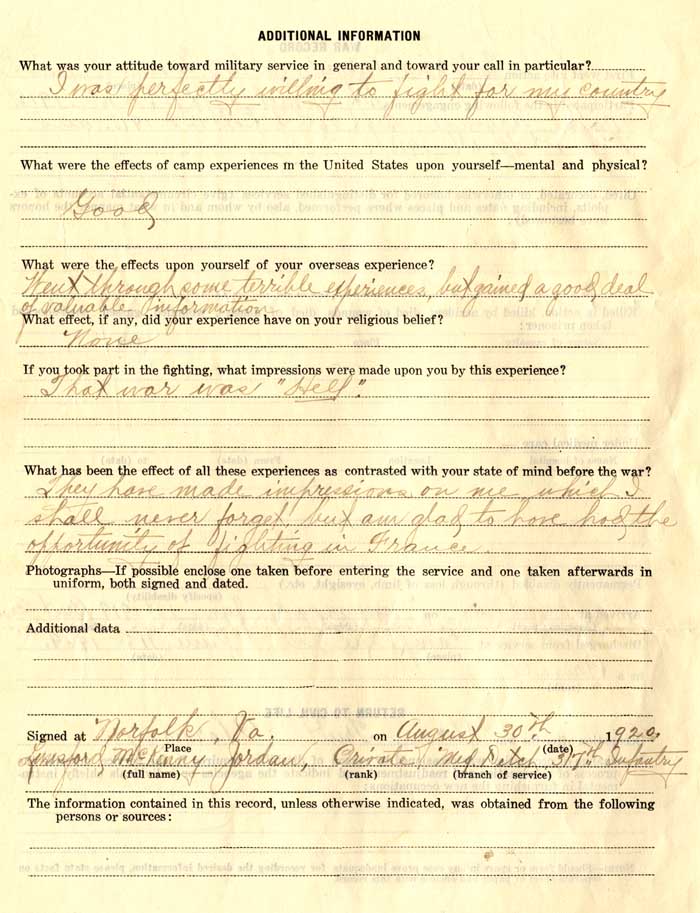 ADDITIONAL INFORMATION
What was your attitude toward military service in general and toward your call in particular?
I was perfectly willing to fight for my country
What were the effects of camp experiences in the United States upon yourself—mental and physical?
Good
What were the effects upon yourself of your overseas experience?
Went through some terrible experiences, but gained a good deal
of valuable information
What effect, if any, did your experience have on your religious belief?
None
If you took part in the fighting, what impressions were made upon you by this experience?
That war was "Hell".
What has been the effect of all these experiences as contrasted with your state of mind before the war?
They have made impressions on me which I
shall never forget, but am glad to have had the
opportunity of fighting in France.
Photographs—If possible enclose one taken before entering the service and one taken afterwards in
uniform, both signed and dated.
Additional data
Signed at Norfolk, Va. on August 30th 1920
Place (date)
Lunsford McKinny Jordan, Private Med Detch 317th Infantry
(full name) (rank) (branch of service)
The information contained in this record, unless otherwise indicated, was obtained from the following
persons or sources: